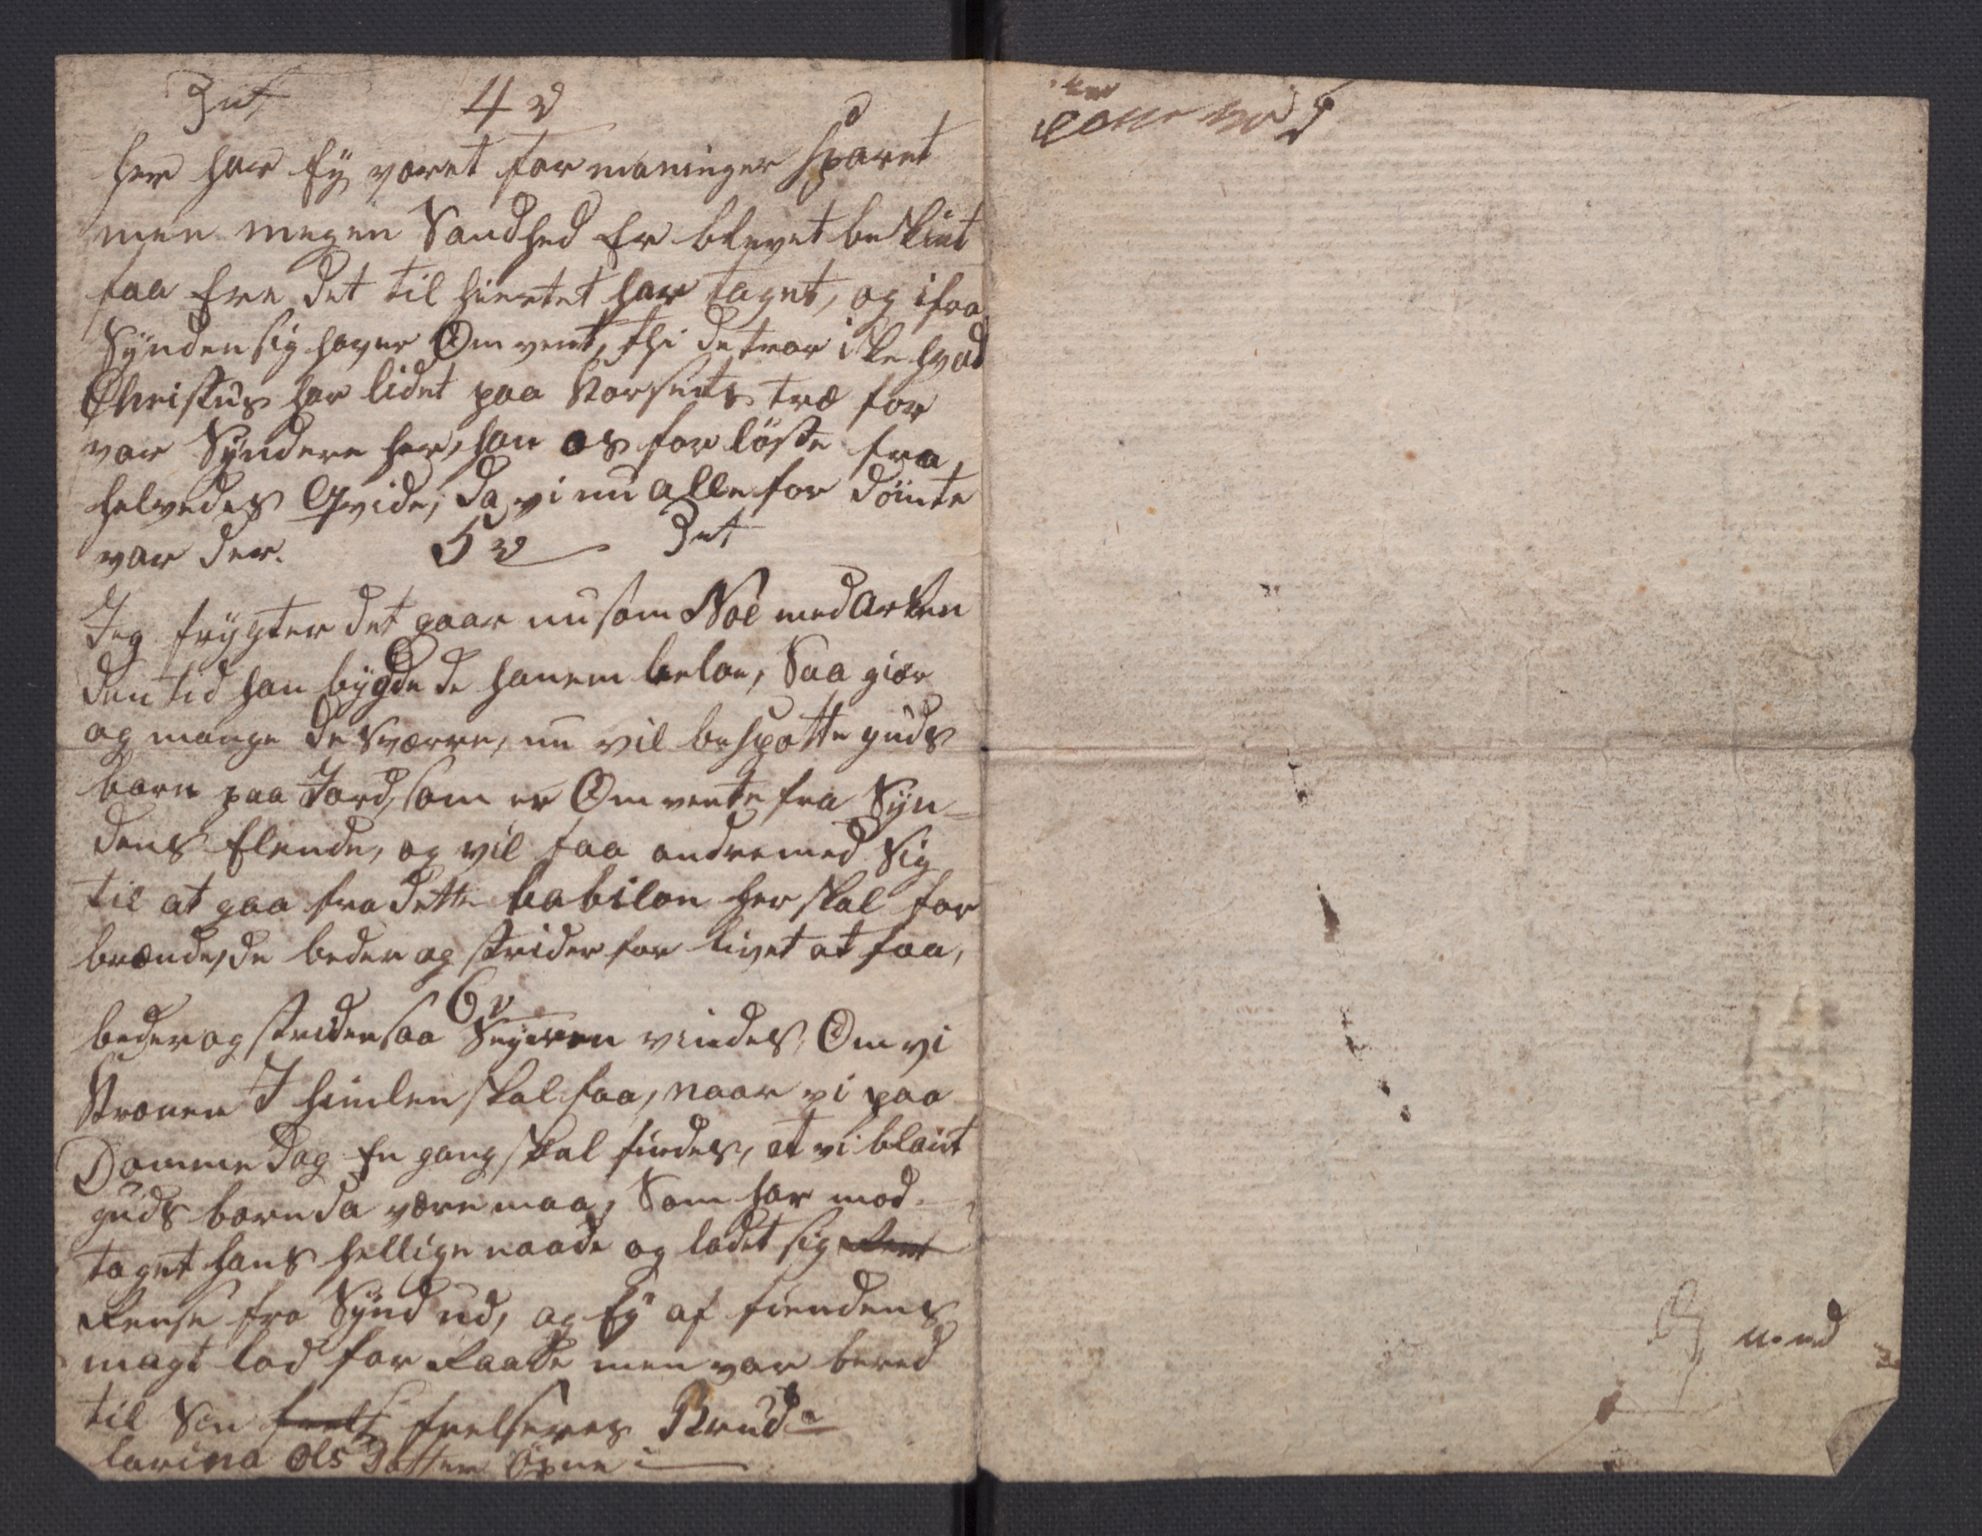 4 v
her har Ey været formaninger Sparet
men megen Sandhed Er blevet beskint
faa Ere det til hiertet har taget, og ifra
Synden sig haver Omvent, thi de tror iske hvad
Christus har lidet paa Korsets træ for
vor Syndere her, han os for löste fra
helvedes Qvide, da vi nu alle for dömte
var der.
5 v
Jeg frygter det gaar nu som Noe med Arken
den tid han bygde de hanem beloe, Saa giør
og mange desværre, nu vil bespotte guds
børn paa Jord, som er Omvente fra Syn-
dens Elende, og vil faa andre med Sig
til at gaa fra dette babilon her skal for
brænde, de beder og strider for livet at faa,
6 v
beder og strider saa Seyeren vindes, Om vi
Kronen I himlen skal faa, naar vi paa
Domme dag En gang skal findes, at vi blant
guds børn da være maa, Som har mod-
taget hans hellige naade og ladet sig
Rense fra Synd ud, og Ey af fiendens
magt lod for Raade men var bered
til Sin frelseres Brud
larina Ols Datter
med